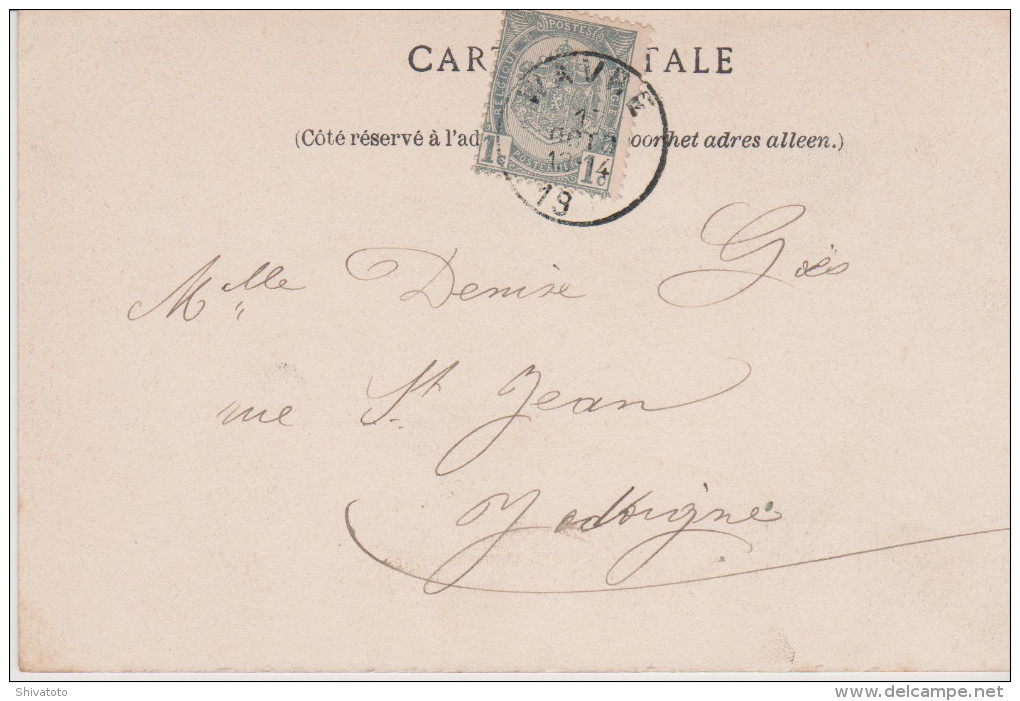 CART TALE
(Côté réservé à l'ad oorhet adres alleen.)
POSTES
BELGIQUE
1c 1c
POSTERIJEN
WAVRE
13-14
Mlle Denise Giès
rue St Jean
Jodoigne
Shivatoto
www.delcampe.net